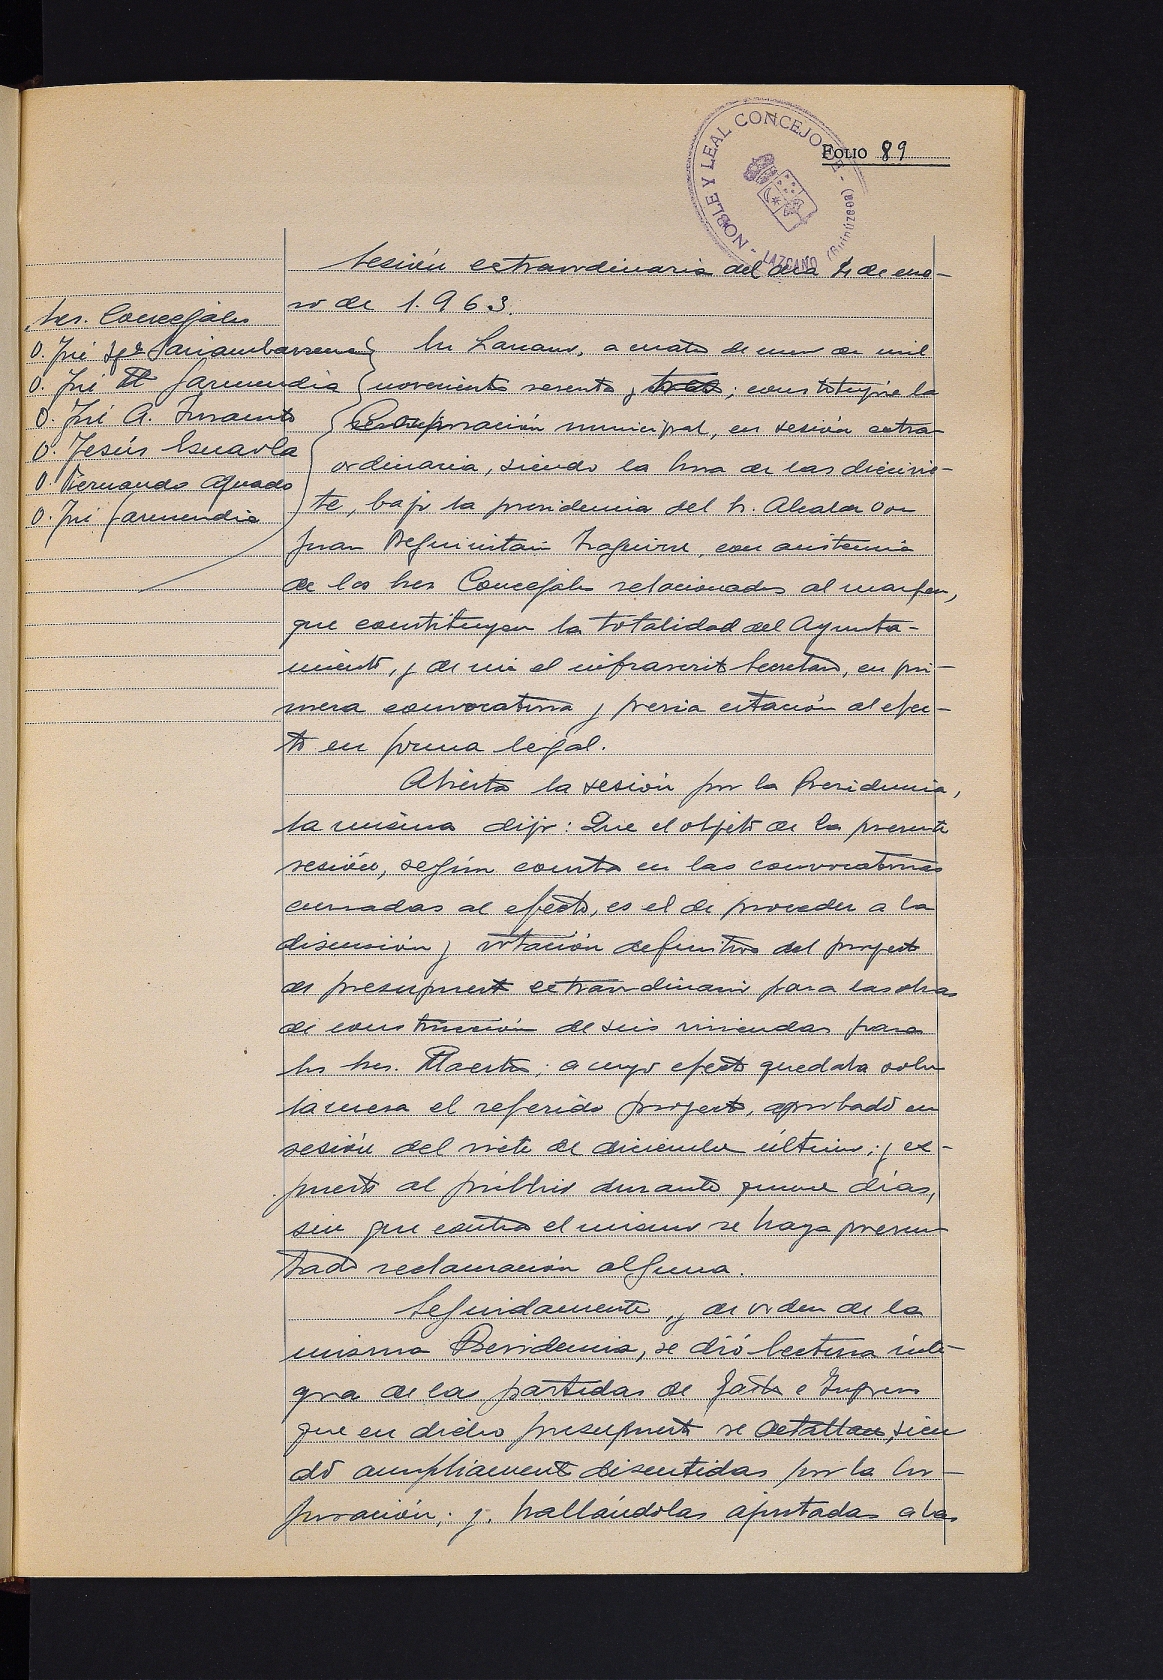 NOBLE Y LEAL CONCEJO DE - LAZCANO (Guipúzcoa) -
FOLIO 89
Sesión extraordinaria del día 4 de ene-
ro de 1.963.
Sres. Concejales
D. José Igº Sarriambarrena
D. José M Garmendia
D. José A. Insausti
D. Jesús Iscuarla
D. Fernando Aguado
D. José Garmendia
En Lazcano, a cuatro de enero de mil
novecientos sesenta y tres; constituyóse la
Corporación municipal, en sesión extra-
ordinaria, siendo la hora de las diecisie-
te, bajo la presidencia del Sr. Alcalde Don
Juan Beguiristain Izaguirre, con asistencia
de los Sres Concejales relacionados al margen,
que constituyen la totalidad del Ayunta-
miento, y de mi el infrascrito Secretario, en pri-
mera convocatoria y previa citación al efec-
to en forma legal.
Abierta la sesión por la Presidencia,
la misma dijo: Que el objeto de la presente
sesión, según consta en las convocatorias
cursadas al efecto, es el de proceder a la
discusión y votación definitiva del proyecto
de presupuesto extraordinario para las obras
de construcción de seis viviendas para
los Sres. Maestros; a cuyo efecto quedaba sobre
la mesa el referido proyecto, aprobado en
sesión del siete de diciembre último; y ex-
puesto al público durante quince días,
sin que contra el mismo se haya presen-
tado reclamación alguna.
Seguidamente, y de orden de la
misma Presidencia, se dió lectura ínte-
gra de las partidas de Gastos e Ingresos
que en dicho presupuesto se detallan, sien
do ampliamente discutidas por la Cor-
poración; y, hallándolas ajustadas a las